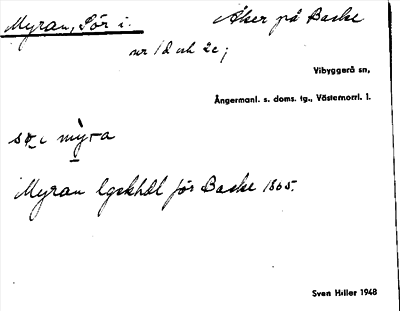 Myran, Sör i.
Åker på Backe
nr 1d och 2c;
Vibyggerå sn,
Ångermanl. s. doms. tg., Västernorrl. l.
sœ̣ ι my̆ra
Myran lgckhdl för Backe 1865.
Sven Hiller 1948